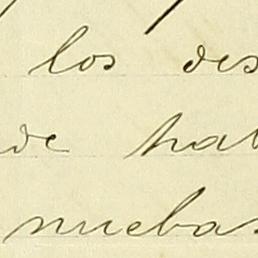 los des
de hab
nuebas